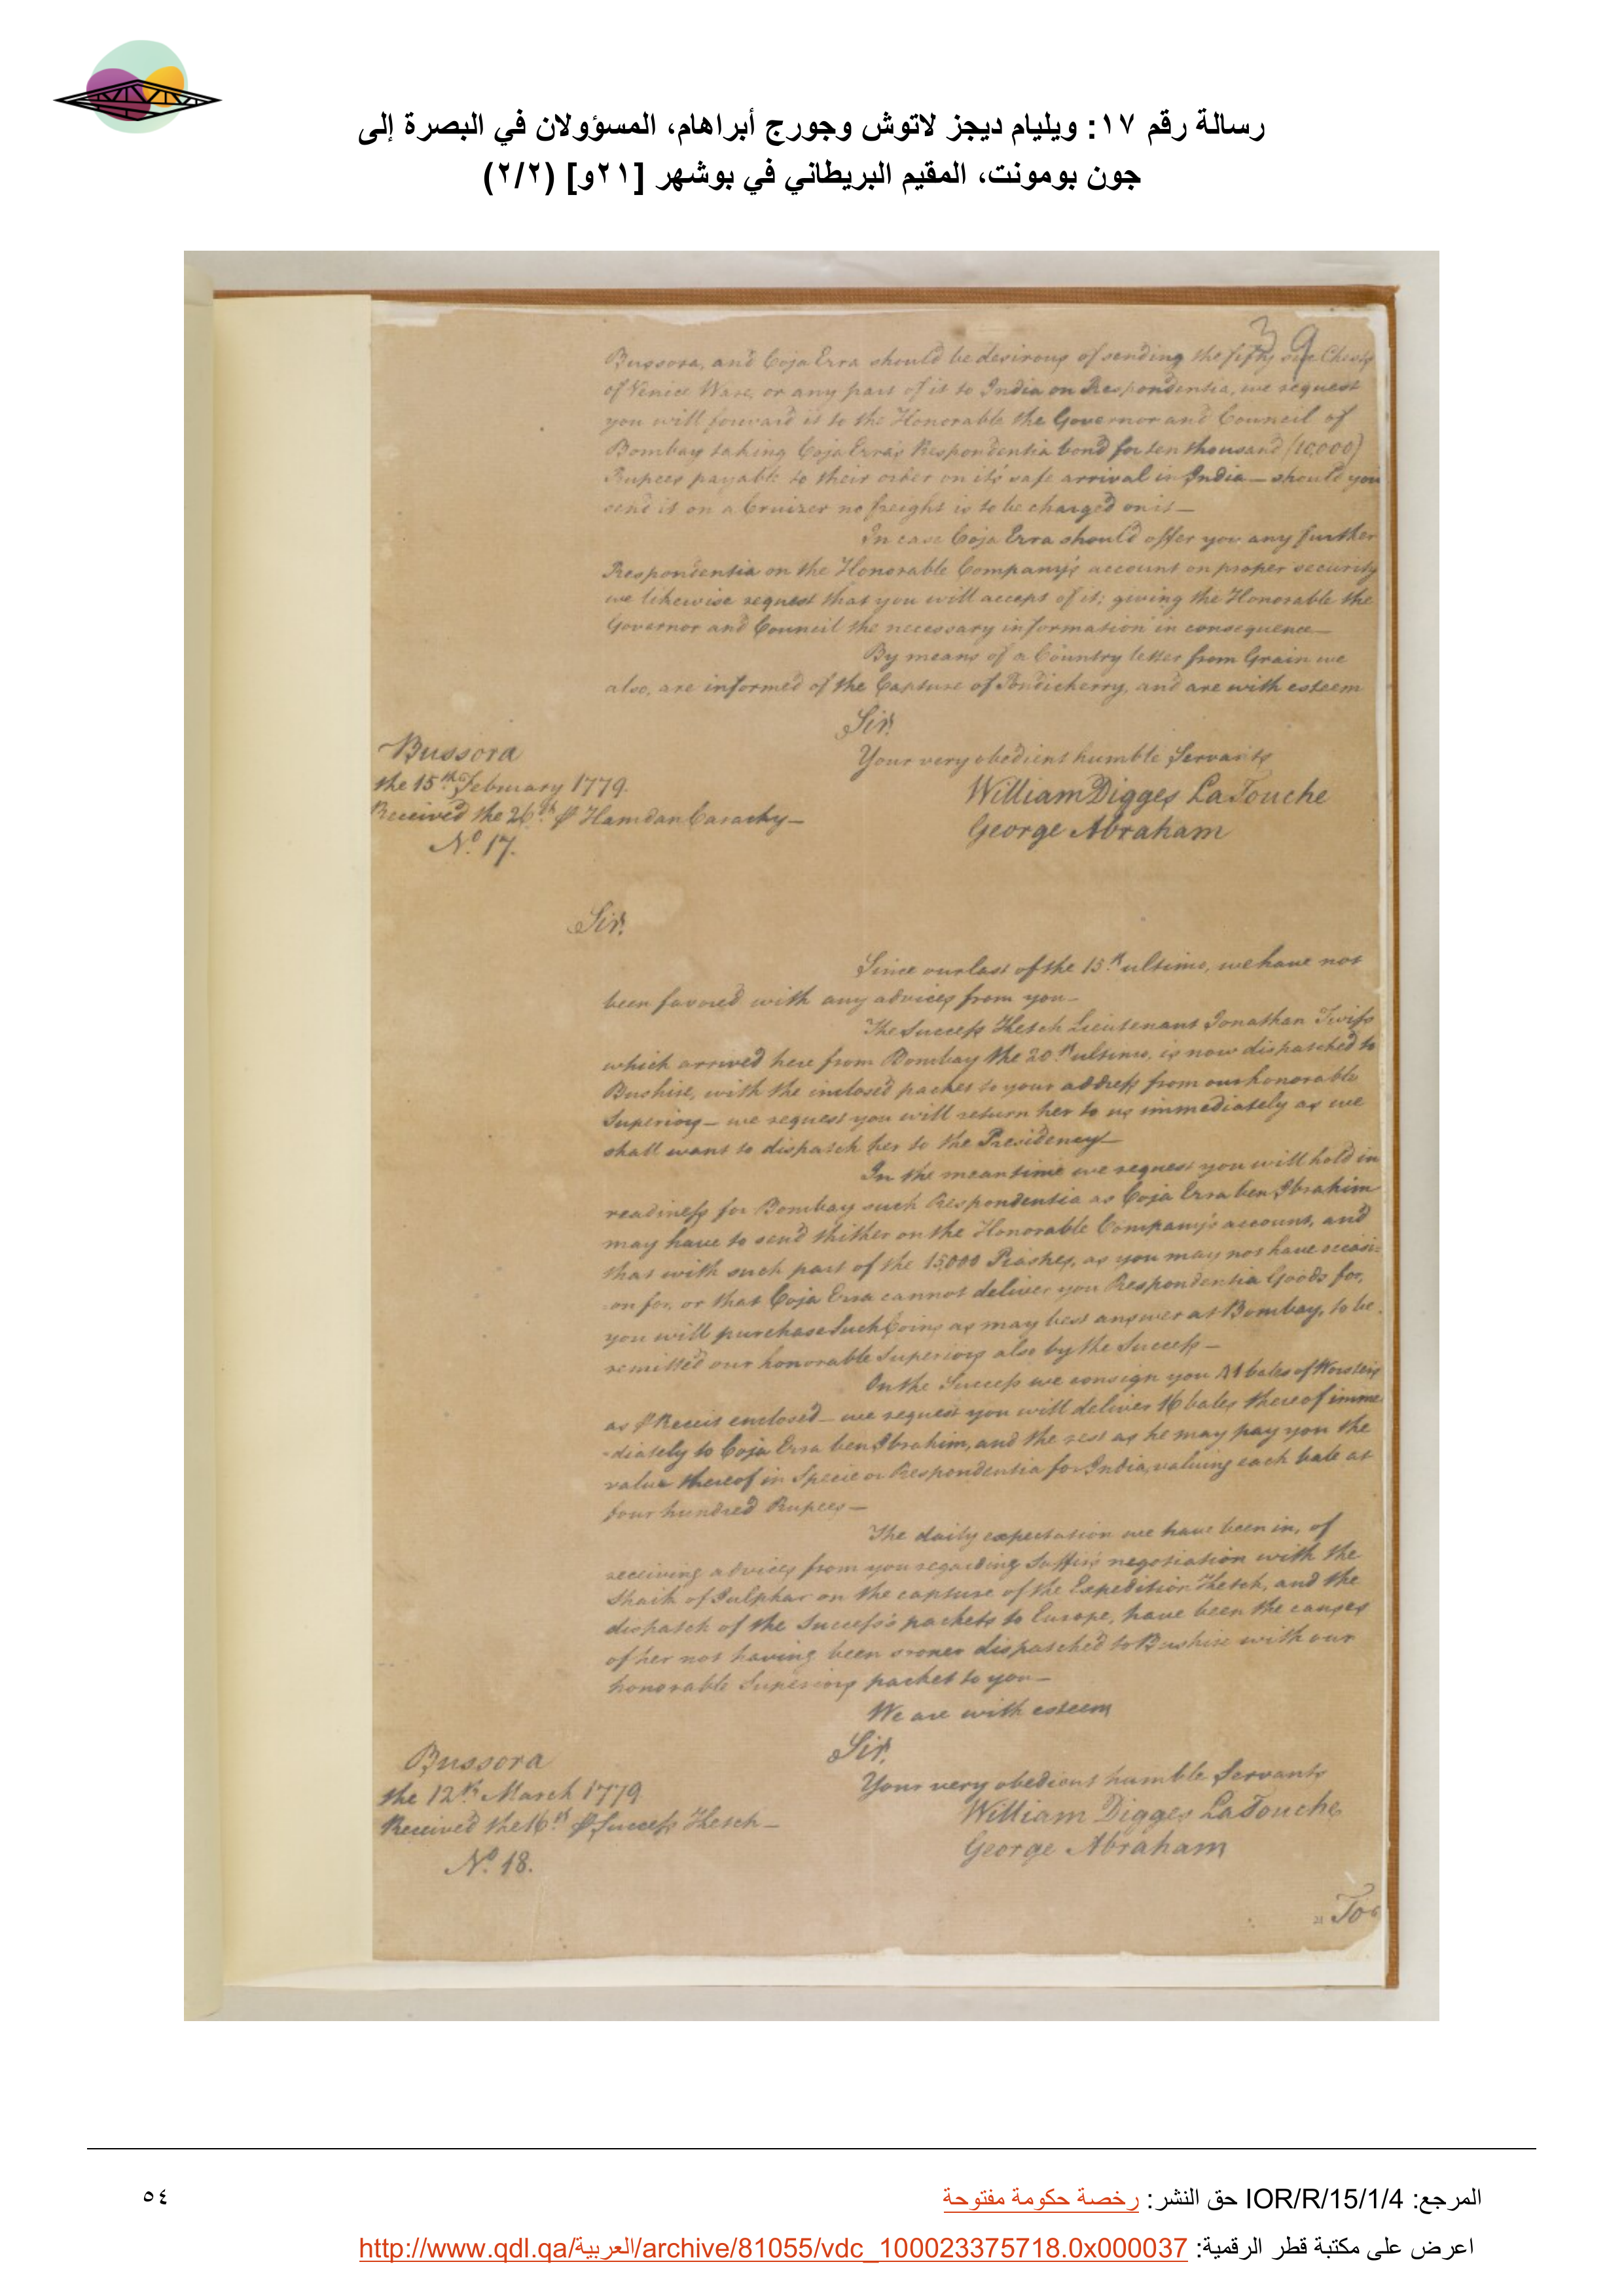 رسالة رقم ١٧: ويليام ديجز لاتوش وجورج أبراهام، المسؤولان في البصرة إلى
جون بومونت، المقيم البريطاني في بوشهر [٢١و] (٢/٢)
39
Bussora, and Coja Erra should be desirous of sending the fifty one Chests
of Venice Ware, or any part of it to India on Respondentia, we request
you will forward it to the Honorable the Governor and Council of
Bombay taking Coja Erra's Respondentia bond for ten thousand (10,000)
Rupees payable to their order on it's safe arrival in India — should you
send it on a Cruizer no freight is to be charged on it —
In case Coja Erra should offer you any further
Respondentia on the Honorable Company's account on proper security
we likewise request that you will accept of it; giving the Honorable the
Governor and Council the necessary information in consequence —
By means of a Country letter from Grain we
also, are informed of the Capture of Pondicherry, and are with esteem
Sir,
Your very obedient humble Servants
William Digges LaTouche
George Abraham
Bussora
the 15th February 1779.
Received the 26th ⅌ Hamdan —
No. 17.
Sir,
Since our last of the 15th ultimo, we have not
been favored with any advices from you —
The Success Ketch Lieutenant Jonathan Twiss
which arrived here from Bombay the 20th ultimo, is now dispatched to
Bushire, with the inclosed packet to your address from our honorable
Superiors — we request you will return her to us immediately as we
shall want to dispatch her to the Presidency —
In the meantime we request you will hold in
readiness for Bombay such Respondentia as Coja Erra ben Ibrahim
may have to send thither on the Honorable Company's account, and
that with such part of the 15,000 Piastres, as you may not have occasi-
-on for, or that Coja Erra cannot deliver you Respondentia Goods for,
you will purchase Such Coins as may best answer at Bombay, to be
remitted our honorable Superiors also by the Success —
On the Success we consign you 21 bales of
as ⅌ Receit enclosed — we request you will deliver 16 bales thereof imme
-diately to Coja Erra ben Ibrahim, and the rest as he may pay you the
value thereof in Specie or Respondentia for India, valuing each bale at
four hundred Rupees —
The daily expectation we have been in, of
receiving advices from you regarding negotiation with the
Shaik of Julphar on the capture of the Expedition Ketch, and the
dispatch of the Success's packets to Europe, have been the causes
of her not having been sooner dispatched to Bushire with our
honorable Superiors packet to you —
We are with esteem
Sir,
Your very obedient humble Servants
William Digges LaTouche
George Abraham
Bussora
the 12th March 1779
Received the 16th ⅌ Success Ketch —
No. 18.
21 To
المرجع: IOR/R/15/1/4 حق النشر: رخصة حكومة مفتوحة
٥٤
اعرض على مكتبة قطر الرقمية: http://www.qdl.qa/العربية/archive/81055/vdc_100023375718.0x000037